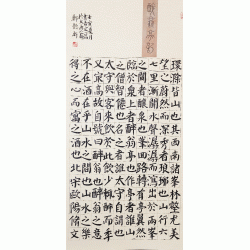 醉翁亭記
環滁皆山也其西南諸峯林壑尤美
望之蔚然而深秀者琅琊也山行六
七里漸聞水聲潺潺而瀉出於兩峯
之間者釀泉也峯回路轉有亭翼然
臨於泉上者醉翁亭也作亭者誰山
之僧智僊也名之者誰太守自謂也
太守與客來飲於此飲少輒醉而年
又最高故自號曰醉翁也醉翁之意
不在酒在乎山水之間也山水之樂
得之心而寓之酒也北宋歐陽脩文
壬寅夏月